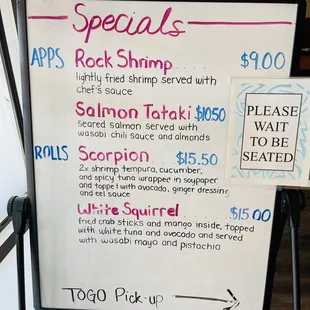 Specials
APPS Rock Shrimp $9.00
lightly fried shrimp served with
chef's sauce
Salmon Tataki $10.50
seared salmon served with
wasabi chili sauce and almonds
ROLLS Scorpion $15.50
2x shrimp tempura, cucumber,
and spicy tuna wrapped in soypaper
and topped with avocado, ginger dressing
and eel sauce
White Squirrel $15.00
fried crab sticks and mango inside, topped
with white tuna and avocado and served
with wasabi mayo and pistachia
TOGO Pick-up
PLEASE
WAIT
TO BE
SEATED